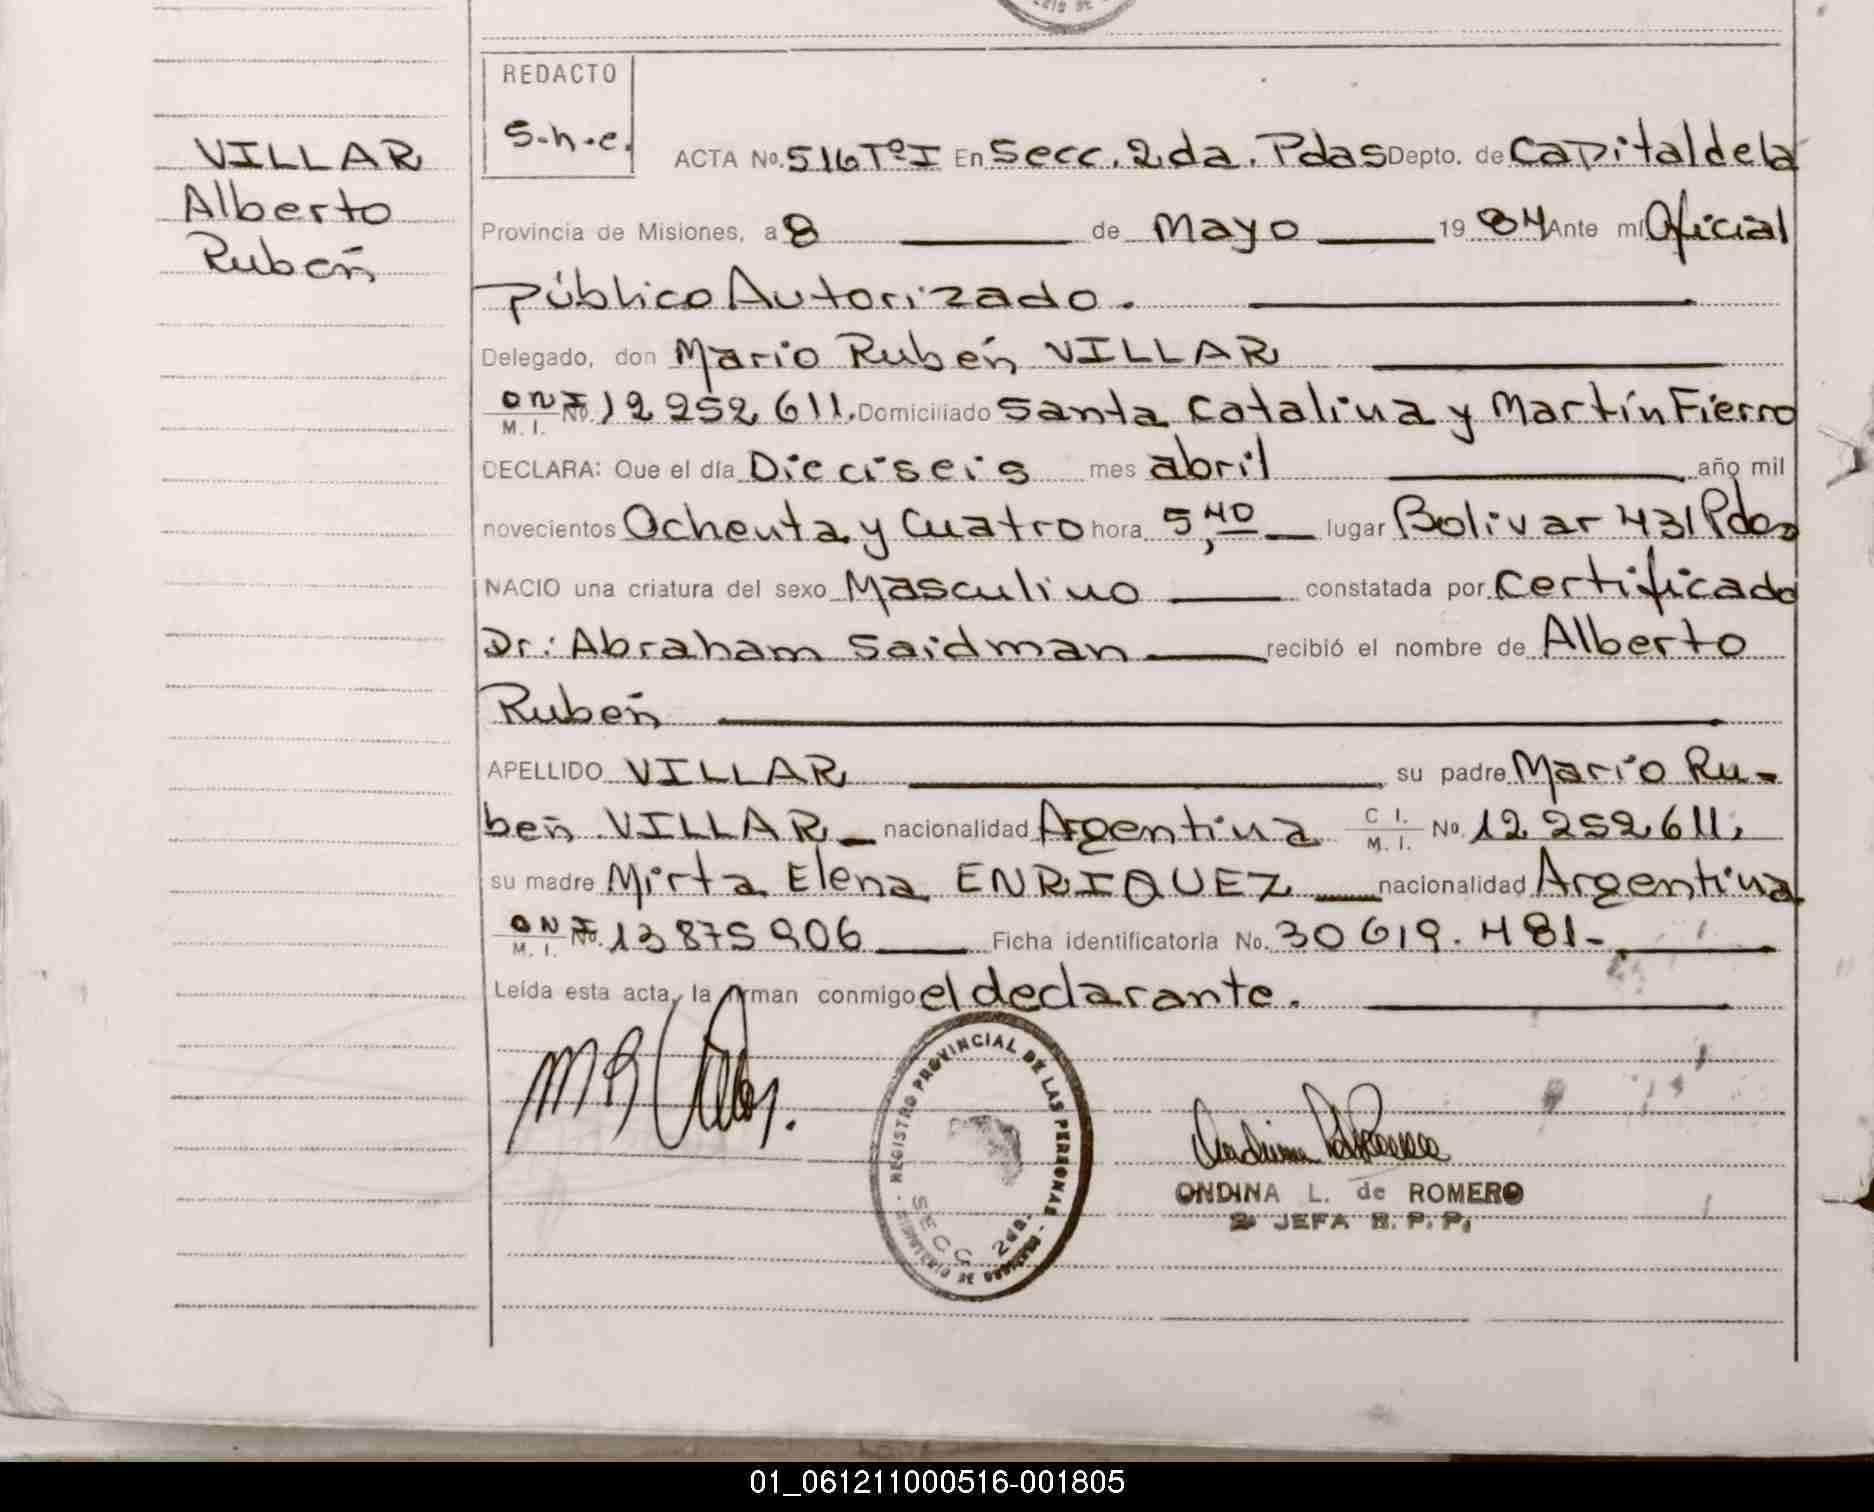 REDACTO
S.h.e.
VILLAR
Alberto
Rubén
ACTA No. 516 Tº I En Secc. 2da. Pdas Depto. de Capital de la
Provincia de Misiones, a 8 de Mayo 1984 Ante mí Oficial
Público Autorizado.
Delegado, don Mario Rubén VILLAR
DNI No. 12 252 611. Domiciliado Santa Catalina y Martín Fierro
M. I.
DECLARA: Que el día Dieciseis mes abril año mil
novecientos Ochenta y Cuatro hora 5,40 lugar Bolivar 431 Pdas
NACIO una criatura del sexo Masculino constatada por Certificado
Dr: Abraham Saidman recibió el nombre de Alberto
Rubén
APELLIDO VILLAR su padre Mario Ru-
bén VILLAR nacionalidad Argentina C I. No. 12 252 611.
M. I.
su madre Mirta Elena ENRIQUEZ nacionalidad Argentina
DNI No. 13 875 906 Ficha identificatoria No. 30 619.481-
M. I.
Leída esta acta, la firman conmigo el declarante.
REGISTRO PROVINCIAL DE LAS PERSONAS
SECC 2da.
MINISTERIO DE GOBIERNO
ONDINA L. de ROMERO
2 JEFA R. P. P.
01_061211000516-001805